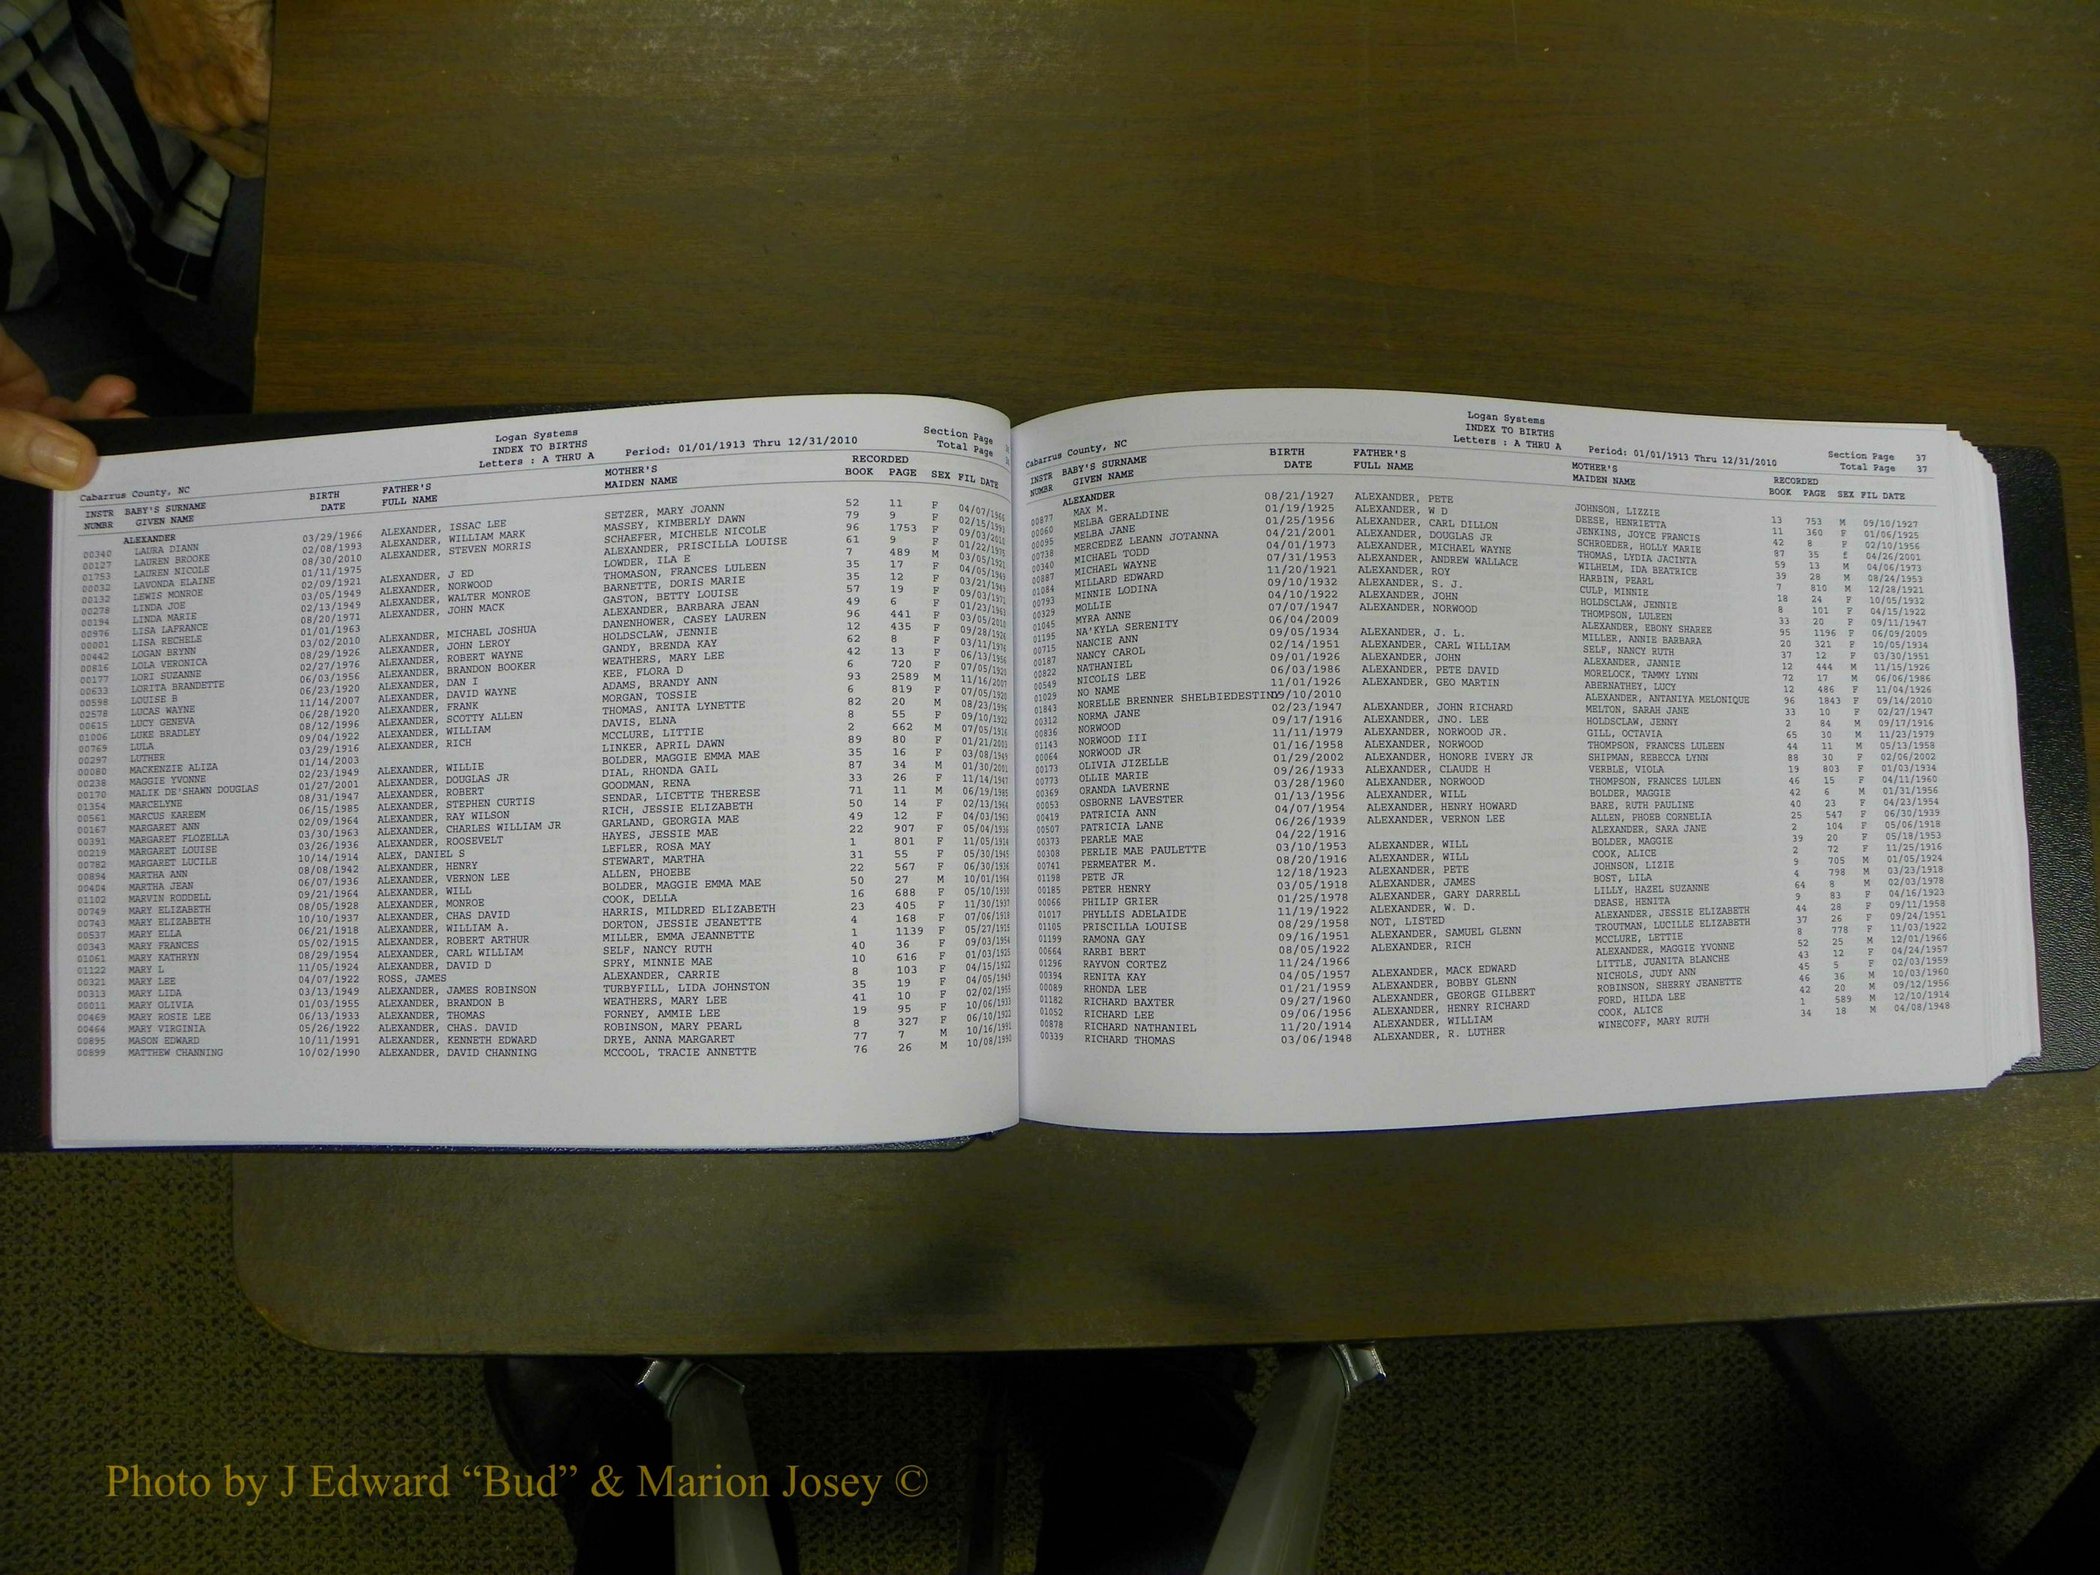 Logan Systems
INDEX TO BIRTHS
Letters : A THRU A Period: 01/01/1913 Thru 12/31/2010
Section Page
Total Page
Cabarrus County, NC
INSTR BABY'S SURNAME BIRTH FATHER'S MOTHER'S RECORDED
NUMBR GIVEN NAME DATE FULL NAME MAIDEN NAME BOOK PAGE SEX FIL DATE
ALEXANDER
00340 LAURA DIANN 03/29/1966 ALEXANDER, ISSAC LEE SETZER, MARY JOANN 52 11 F 04/07/1966
00127 LAUREN BROOKE 02/08/1993 ALEXANDER, WILLIAM MARK MASSEY, KIMBERLY DAWN 79 9 F 02/15/1993
01753 LAUREN NICOLE 08/30/2010 ALEXANDER, STEVEN MORRIS SCHAEFER, MICHELE NICOLE 96 1753 F 09/03/2010
00032 LAVONDA ELAINE 01/11/1975 ALEXANDER, PRISCILLA LOUISE 61 9 F 01/22/1975
00132 LEWIS MONROE 02/09/1921 ALEXANDER, J ED LOWDER, ILA E 7 489 M 03/05/1921
00278 LINDA JOE 03/05/1949 ALEXANDER, NORWOOD THOMASON, FRANCES LULEEN 35 17 F 04/05/1949
00194 LINDA MARIE 02/13/1949 ALEXANDER, WALTER MONROE BARNETTE, DORIS MARIE 35 12 F 03/21/1949
00976 LISA LAFRANCE 08/20/1971 ALEXANDER, JOHN MACK GASTON, BETTY LOUISE 57 19 F 09/03/1971
00001 LISA RECHELE 01/01/1963 ALEXANDER, BARBARA JEAN 49 6 F 01/23/1963
00442 LOGAN BRYNN 03/02/2010 ALEXANDER, MICHAEL JOSHUA DANENHOWER, CASEY LAUREN 96 441 F 03/05/2010
00816 LOLA VERONICA 08/29/1926 ALEXANDER, JOHN LEROY HOLDSCLAW, JENNIE 12 435 F 09/28/1926
00177 LORI SUZANNE 02/27/1976 ALEXANDER, ROBERT WAYNE GANDY, BRENDA KAY 62 8 F 03/11/1976
00633 LORITA BRANDETTE 06/03/1956 ALEXANDER, BRANDON BOOKER WEATHERS, MARY LEE 42 13 F 06/13/1956
00598 LOUISE B 06/23/1920 ALEXANDER, DAN I KEE, FLORA D 6 720 F 07/05/1920
02578 LUCAS WAYNE 11/14/2007 ALEXANDER, DAVID WAYNE ADAMS, BRANDY ANN 93 2589 M 11/16/2007
00615 LUCY GENEVA 06/28/1920 ALEXANDER, FRANK MORGAN, TOSSIE 6 819 F 07/05/1920
01006 LUKE BRADLEY 08/12/1996 ALEXANDER, SCOTTY ALLEN THOMAS, ANITA LYNETTE 82 20 M 08/23/1996
00769 LULA 09/04/1922 ALEXANDER, WILLIAM DAVIS, ELNA 8 55 F 09/10/1922
00297 LUTHER 03/29/1916 ALEXANDER, RICH MCCLURE, LITTIE 2 662 M 07/05/1916
00080 MACKENZIE ALIZA 01/14/2003 LINKER, APRIL DAWN 89 80 F 01/21/2003
00238 MAGGIE YVONNE 02/23/1949 ALEXANDER, WILLIE BOLDER, MAGGIE EMMA MAE 35 16 F 03/08/1949
00170 MALIK DE'SHAWN DOUGLAS 01/27/2001 ALEXANDER, DOUGLAS JR DIAL, RHONDA GAIL 87 34 M 01/30/2001
01354 MARCELYNE 08/31/1947 ALEXANDER, ROBERT GOODMAN, RENA 33 26 F 11/14/1947
00561 MARCUS KAREEM 06/15/1985 ALEXANDER, STEPHEN CURTIS SENDAR, LICETTE THERESE 71 11 M 06/19/1985
00167 MARGARET ANN 02/09/1964 ALEXANDER, RAY WILSON RICH, JESSIE ELIZABETH 50 14 F 02/13/1964
00391 MARGARET FLOZELLA 03/30/1963 ALEXANDER, CHARLES WILLIAM JR GARLAND, GEORGIA MAE 49 12 F 04/03/1963
00219 MARGARET LOUISE 03/26/1936 ALEXANDER, ROOSEVELT HAYES, JESSIE MAE 22 907 F 05/04/1936
00782 MARGARET LUCILE 10/14/1914 ALEX, DANIEL S LEFLER, ROSA MAY 1 801 F 11/05/1914
00894 MARTHA ANN 08/08/1942 ALEXANDER, HENRY STEWART, MARTHA 31 55 F 05/30/1945
00404 MARTHA JEAN 06/07/1936 ALEXANDER, VERNON LEE ALLEN, PHOEBE 22 567 F 06/30/1936
01102 MARVIN RODDELL 09/21/1964 ALEXANDER, WILL BOLDER, MAGGIE EMMA MAE 50 27 M 10/01/1964
00749 MARY ELIZABETH 08/05/1928 ALEXANDER, MONROE COOK, DELLA 16 688 F 05/10/1930
00743 MARY ELIZABETH 10/10/1937 ALEXANDER, CHAS DAVID HARRIS, MILDRED ELIZABETH 23 405 F 11/30/1937
00537 MARY ELLA 06/21/1918 ALEXANDER, WILLIAM A. DORTON, JESSIE JEANETTE 4 168 F 07/06/1918
00343 MARY FRANCES 05/02/1915 ALEXANDER, ROBERT ARTHUR MILLER, EMMA JEANNETTE 1 1139 F 05/27/1915
01061 MARY KATHRYN 08/29/1954 ALEXANDER, CARL WILLIAM SELF, NANCY RUTH 40 36 F 09/03/1954
01122 MARY L 11/05/1924 ALEXANDER, DAVID D SPRY, MINNIE MAE 10 616 F 01/03/1925
00321 MARY LEE 04/07/1922 ROSS, JAMES ALEXANDER, CARRIE 8 103 F 04/15/1922
00313 MARY LIDA 03/13/1949 ALEXANDER, JAMES ROBINSON TURBYFILL, LIDA JOHNSTON 35 19 F 04/05/1949
00011 MARY OLIVIA 01/03/1955 ALEXANDER, BRANDON B WEATHERS, MARY LEE 41 10 F 02/02/1955
00469 MARY ROSIE LEE 06/13/1933 ALEXANDER, THOMAS FORNEY, AMMIE LEE 19 95 F 10/06/1933
00464 MARY VIRGINIA 05/26/1922 ALEXANDER, CHAS. DAVID ROBINSON, MARY PEARL 8 327 F 06/10/1922
00895 MASON EDWARD 10/11/1991 ALEXANDER, KENNETH EDWARD DRYE, ANNA MARGARET 77 7 M 10/16/1991
00899 MATTHEW CHANNING 10/02/1990 ALEXANDER, DAVID CHANNING MCCOOL, TRACIE ANNETTE 76 26 M 10/08/1990
Logan Systems
INDEX TO BIRTHS
Letters : A THRU A Period: 01/01/1913 Thru 12/31/2010
Section Page 37
Total Page 37
Cabarrus County, NC
INSTR BABY'S SURNAME BIRTH FATHER'S MOTHER'S RECORDED
NUMBR GIVEN NAME DATE FULL NAME MAIDEN NAME BOOK PAGE SEX FIL DATE
ALEXANDER
00877 MAX M. 08/21/1927 ALEXANDER, PETE JOHNSON, LIZZIE 13 753 M 09/10/1927
00060 MELBA GERALDINE 01/19/1925 ALEXANDER, W D DEESE, HENRIETTA 11 360 F 01/06/1925
00095 MELBA JANE 01/25/1956 ALEXANDER, CARL DILLON JENKINS, JOYCE FRANCIS 42 8 F 02/10/1956
00738 MERCEDEZ LEANN JOTANNA 04/21/2001 ALEXANDER, DOUGLAS JR SCHROEDER, HOLLY MARIE 87 35 F 04/26/2001
00340 MICHAEL TODD 04/01/1973 ALEXANDER, MICHAEL WAYNE THOMAS, LYDIA JACINTA 59 13 M 04/06/1973
00887 MICHAEL WAYNE 07/31/1953 ALEXANDER, ANDREW WALLACE WILHELM, IDA BEATRICE 39 28 M 08/24/1953
01084 MILLARD EDWARD 11/20/1921 ALEXANDER, ROY HARBIN, PEARL 7 810 M 12/28/1921
00793 MINNIE LODINA 09/10/1932 ALEXANDER, S. J. CULP, MINNIE 18 24 F 10/05/1932
00329 MOLLIE 04/10/1922 ALEXANDER, JOHN HOLDSCLAW, JENNIE 8 101 F 04/15/1922
01045 MYRA ANNE 07/07/1947 ALEXANDER, NORWOOD THOMPSON, LULEEN 33 20 F 09/11/1947
01195 NA'KYLA SERENITY 06/04/2009 ALEXANDER, EBONY SHAREE 95 1196 F 06/09/2009
00715 NANCIE ANN 09/05/1934 ALEXANDER, J. L. MILLER, ANNIE BARBARA 20 321 F 10/05/1934
00187 NANCY CAROL 02/14/1951 ALEXANDER, CARL WILLIAM SELF, NANCY RUTH 37 12 F 03/30/1951
00822 NATHANIEL 09/01/1926 ALEXANDER, JOHN ALEXANDER, JANNIE 12 444 M 11/15/1926
00549 NICOLIS LEE 06/03/1986 ALEXANDER, PETE DAVID MORELOCK, TAMMY LYNN 72 17 M 06/06/1986
01029 NO NAME 11/01/1926 ALEXANDER, GEO MARTIN ABERNATHEY, LUCY 12 486 F 11/04/1926
01843 NORELLE BRENNER SHELBIEDESTINY 09/10/2010 ALEXANDER, ANTANIYA MELONIQUE 96 1843 F 09/14/2010
00312 NORMA JANE 02/23/1947 ALEXANDER, JOHN RICHARD MELTON, SARAH JANE 33 10 F 02/27/1947
00836 NORWOOD 09/17/1916 ALEXANDER, JNO. LEE HOLDSCLAW, JENNY 2 84 M 09/17/1916
01143 NORWOOD III 11/11/1979 ALEXANDER, NORWOOD JR. GILL, OCTAVIA 65 30 M 11/23/1979
00064 NORWOOD JR 01/16/1958 ALEXANDER, NORWOOD THOMPSON, FRANCES LULEEN 44 11 M 05/13/1958
00173 OLIVIA JIZELLE 01/29/2002 ALEXANDER, HONORE IVERY JR SHIPMAN, REBECCA LYNN 88 30 F 02/06/2002
00773 OLLIE MARIE 09/26/1933 ALEXANDER, CLAUDE H VERBLE, VIOLA 19 803 F 01/03/1934
00369 ORANDA LAVERNE 03/28/1960 ALEXANDER, NORWOOD THOMPSON, FRANCES LULEN 46 15 F 04/11/1960
00053 OSBORNE LAVESTER 01/13/1956 ALEXANDER, WILL BOLDER, MAGGIE 42 6 M 01/31/1956
00419 PATRICIA ANN 04/07/1954 ALEXANDER, HENRY HOWARD BARE, RUTH PAULINE 40 23 F 04/23/1954
00507 PATRICIA LANE 06/26/1939 ALEXANDER, VERNON LEE ALLEN, PHOEB CORNELIA 25 547 F 06/30/1939
00373 PEARLE MAE 04/22/1916 ALEXANDER, SARA JANE 2 104 F 05/06/1918
00308 PERLIE MAE PAULETTE 03/10/1953 ALEXANDER, WILL BOLDER, MAGGIE 39 20 F 05/18/1953
00741 PERMEATER M. 08/20/1916 ALEXANDER, WILL COOK, ALICE 2 72 F 11/25/1916
01198 PETE JR 12/18/1923 ALEXANDER, PETE JOHNSON, LIZIE 9 705 M 01/05/1924
00185 PETER HENRY 03/05/1918 ALEXANDER, JAMES BOST, LILA 4 798 M 03/23/1918
00066 PHILIP GRIER 01/25/1978 ALEXANDER, GARY DARRELL LILLY, HAZEL SUZANNE 64 8 M 02/03/1978
01017 PHYLLIS ADELAIDE 11/19/1922 ALEXANDER, W. D. DEASE, HENITA 9 83 F 04/16/1923
01105 PRISCILLA LOUISE 08/29/1958 NOT, LISTED ALEXANDER, JESSIE ELIZABETH 44 28 F 09/11/1958
01199 RAMONA GAY 09/16/1951 ALEXANDER, SAMUEL GLENN TROUTMAN, LUCILLE ELIZABETH 37 26 F 09/24/1951
00664 RARBI BERT 08/05/1922 ALEXANDER, RICH MCCLURE, LETTIE 8 778 F 11/03/1922
01296 RAYVON CORTEZ 11/24/1966 ALEXANDER, MAGGIE YVONNE 52 25 M 12/01/1966
00394 RENITA KAY 04/05/1957 ALEXANDER, MACK EDWARD LITTLE, JUANITA BLANCHE 43 12 F 04/24/1957
00089 RHONDA LEE 01/21/1959 ALEXANDER, BOBBY GLENN NICHOLS, JUDY ANN 45 5 F 02/03/1959
01182 RICHARD BAXTER 09/27/1960 ALEXANDER, GEORGE GILBERT ROBINSON, SHERRY JEANETTE 46 36 M 10/03/1960
01052 RICHARD LEE 09/06/1956 ALEXANDER, HENRY RICHARD FORD, HILDA LEE 42 20 M 09/12/1956
00878 RICHARD NATHANIEL 11/20/1914 ALEXANDER, WILLIAM COOK, ALICE 1 589 M 12/10/1914
00339 RICHARD THOMAS 03/06/1948 ALEXANDER, R. LUTHER WINECOFF, MARY RUTH 34 18 M 04/08/1948
Photo by J Edward “Bud” & Marion Josey ©